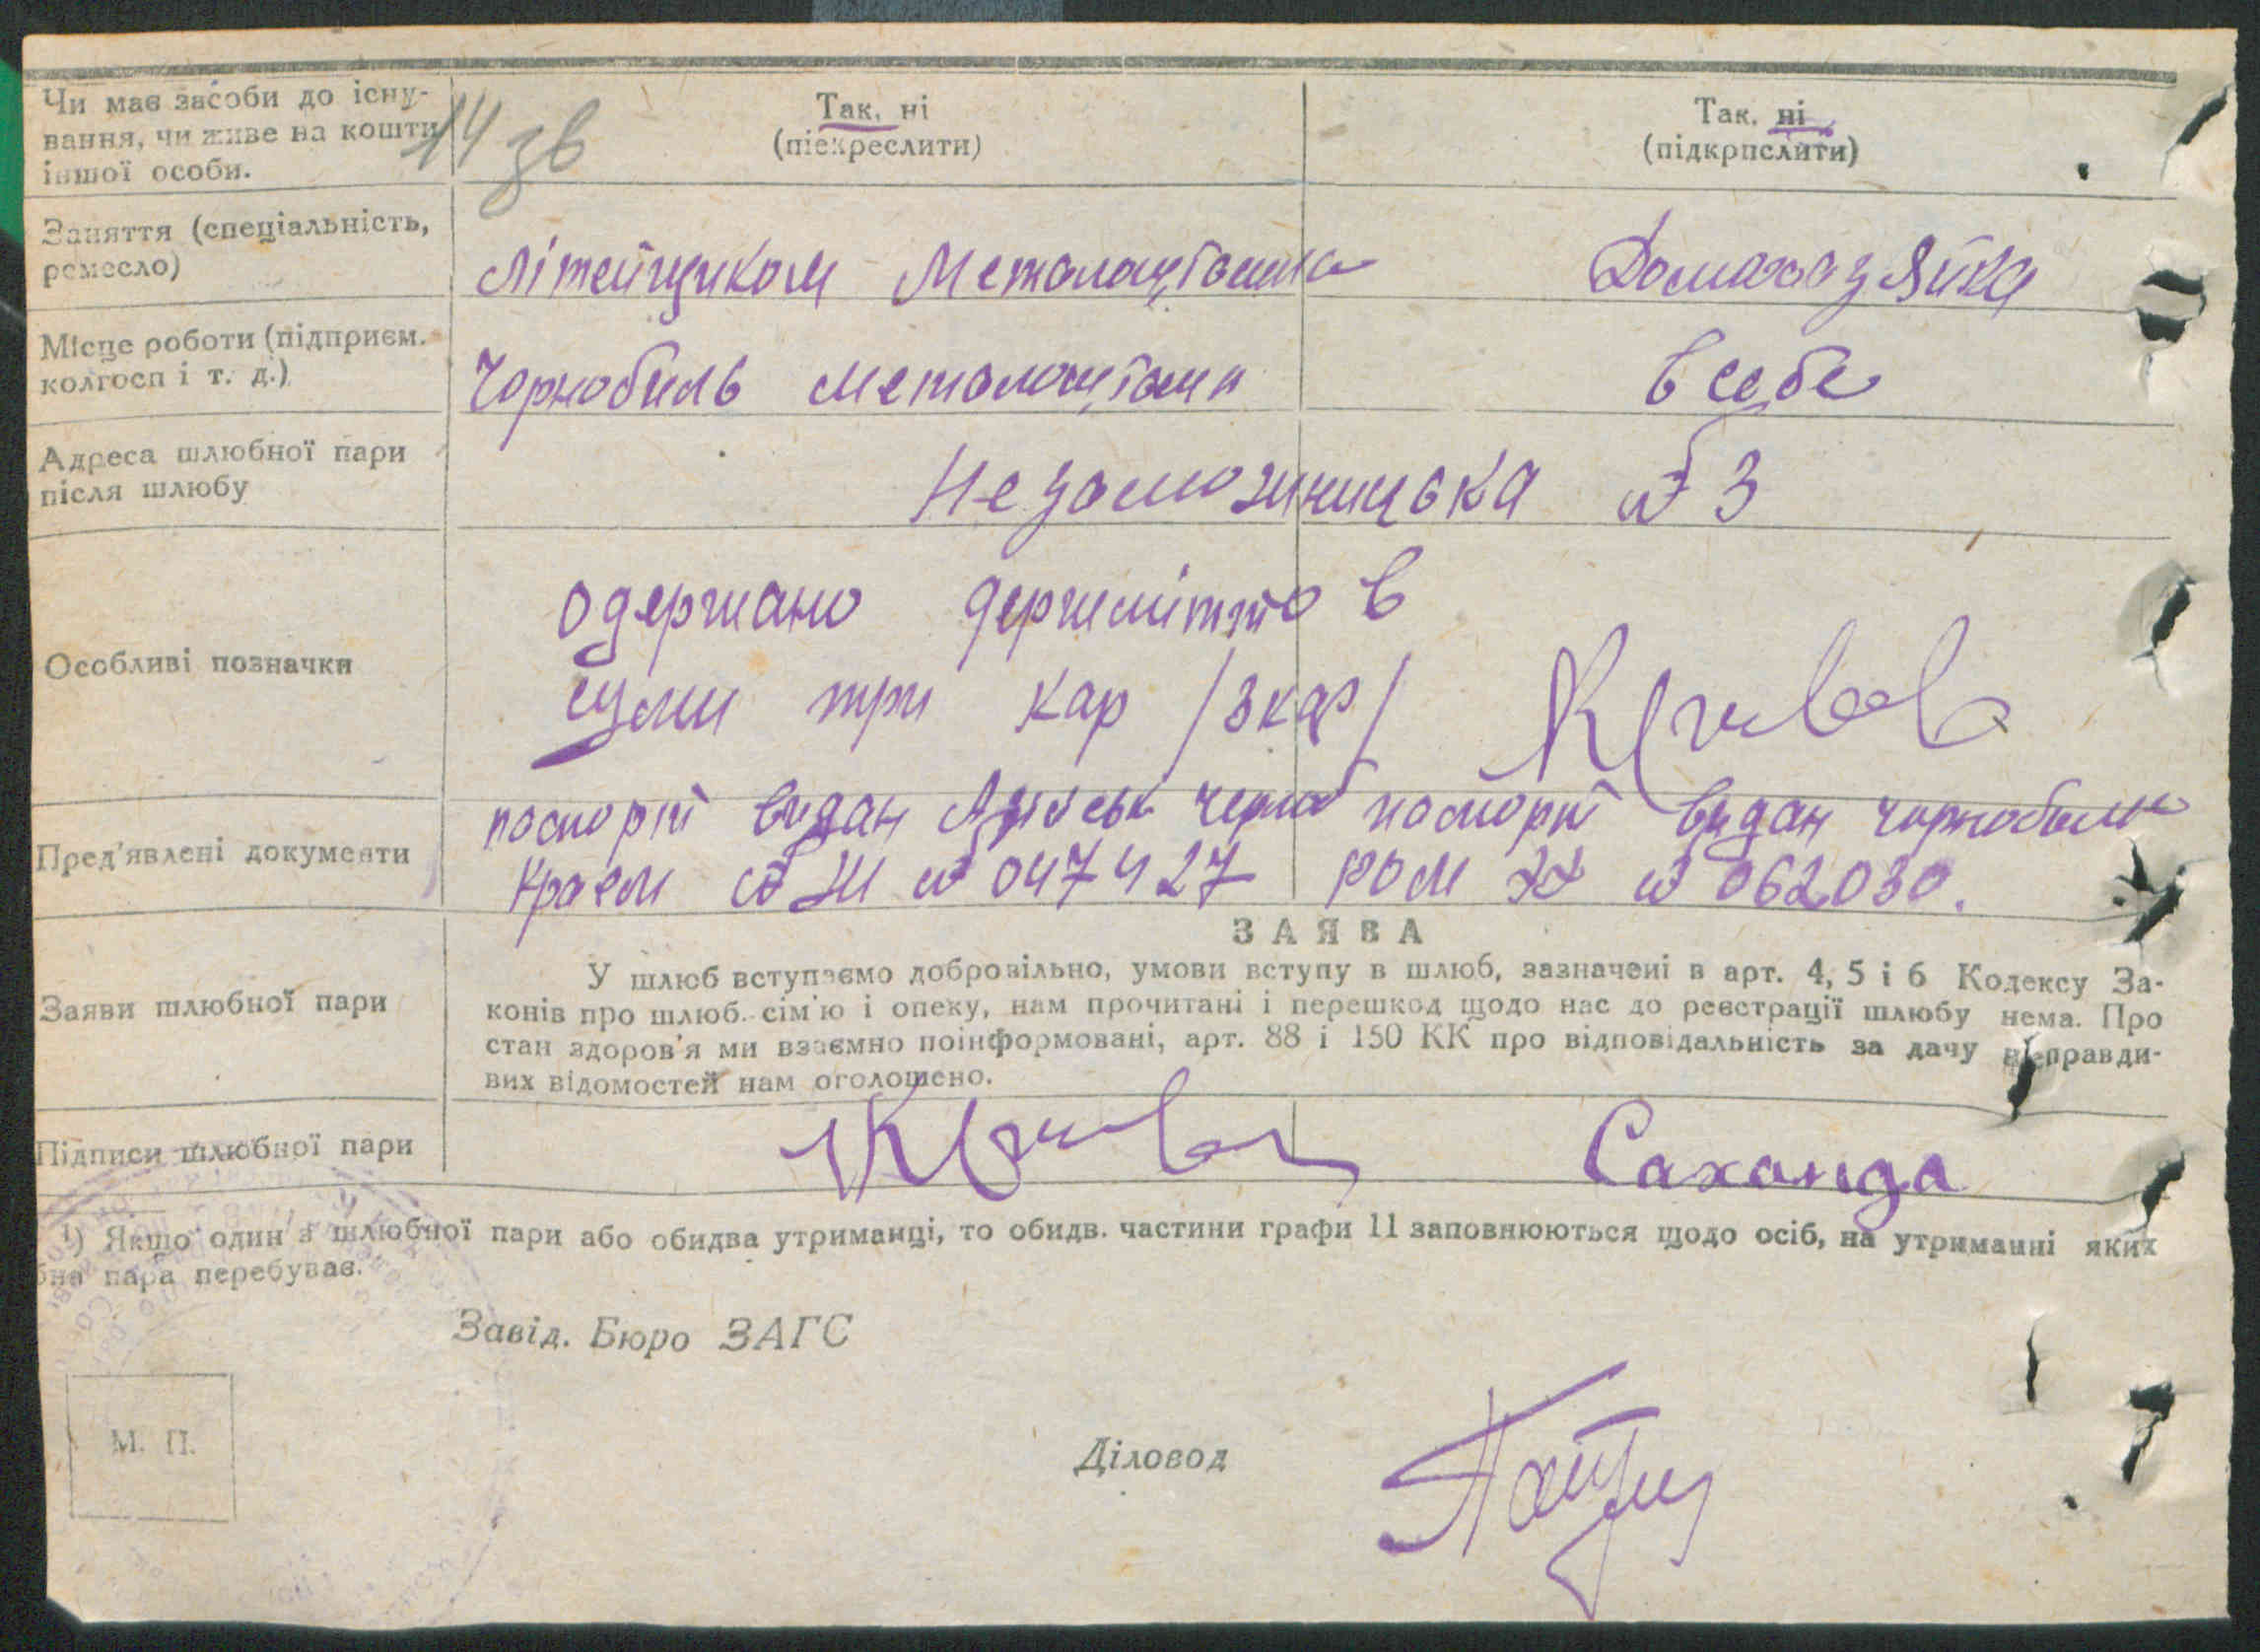 Чи має засоби до існу-
вання, чи живе на кошти
іншої особи.
14 зв
Так, ні
(піекреслити)
Так, ні
(підкрпслити)
Заняття (спеціальність,
ремесло)
Літейщиком
Домохазяйка
Місце роботи (підприєм.
колгосп і т. д.)
Чорнобиль
в себе
Адреса шлюбної пари
після шлюбу
Незаможницька № 3
Особливі позначки
одержано держмітто в
суми три кар /3 кар/
Пред'явлені документи
паспорт видан
краем № 047427
паспорт видан
РОМ № 062030.
ЗАЯВА
Заяви шлюбної пари
У шлюб вступаємо добровільно, умови вступу в шлюб, зазначені в арт. 4, 5 і 6 Кодексу За-
конів про шлюб. сім'ю і опеку, нам прочитані і перешкод щодо нас до реєстрації шлюбу нема. Про
стан здоров'я ми взаємно поінформовані, арт. 88 і 150 КК про відповідальність за дачу неправди-
вих відомостей нам оголошено.
Підписи шлюбної пари
Саханда
¹) Якщо один з шлюбної пари або обидва утриманці, то обидв. частини графи 11 заповнюються щодо осіб, на утриманні яких
бна пара перебуває.
Завід. Бюро ЗАГС
М. П.
Діловод